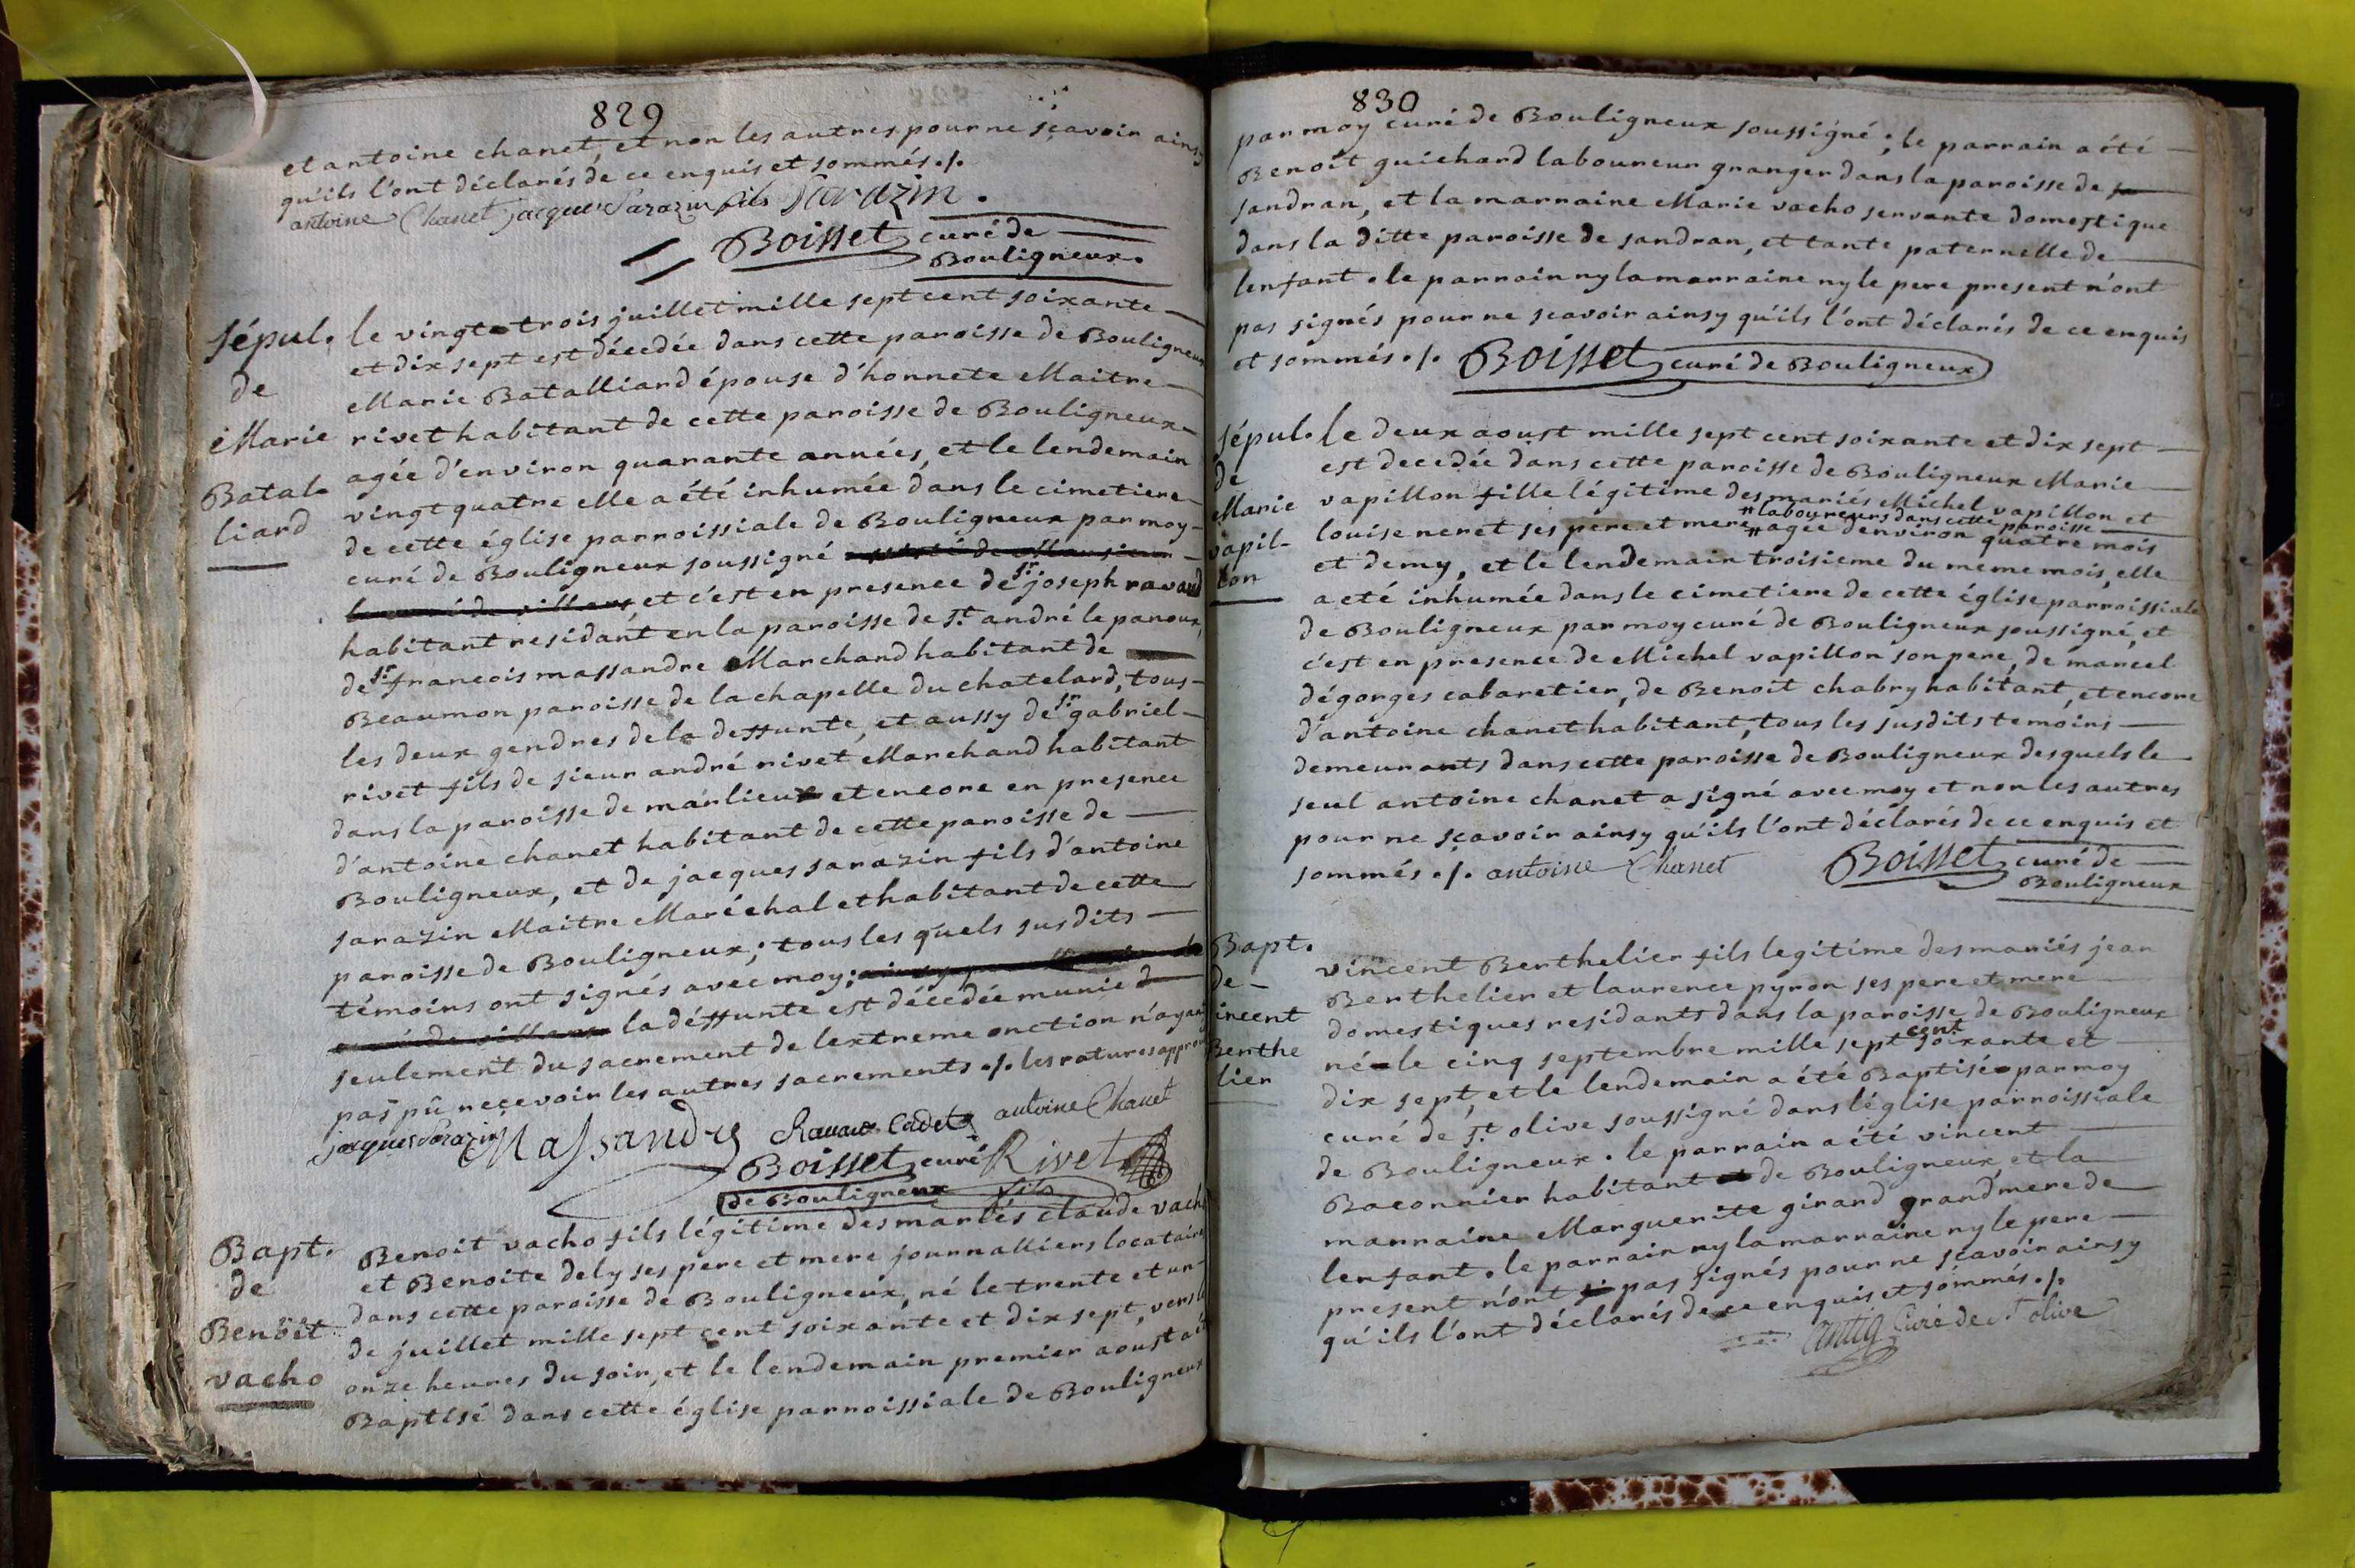 829
et antoine chanet, et non les autres pour ne sçavoir ainsy
qu'ils l'ont déclarés de ce enquis et sommés ./.
antoine Chanet jacques Sarazin fils Sarazin .
Boisset curé de
Bouligneux .
sépul. de Marie Batal-liard
le vingt trois juillet mille sept cent soixante
et dix sept est décedée dans cette paroisse de Bouligneux
Marie Batalliard épouse d'honnete Maitre
rivet habitant de cette paroisse de Bouligneux
agée d'environ quarante années, et le lendemain
vingt quatre elle a été inhumée dans le cimetiere
de cette église parroissiale de Bouligneux par moy
curé de Bouligneux soussigné
et c'est en presence de sr joseph ravaud
habitant residant en la paroisse de st andré le panoux,
de sr francois massandre Marchand habitant de
Beaumon paroisse de la chapelle du chatelard, tous
les deux gendres de la deffunte, et aussy de sr gabriel
rivet fils de sieur andré rivet Marchand habitant
dans la paroisse de marlieux et encore en presence
d'antoine chanet habitant de cette paroisse de
Bouligneux, et de jacques sarazin fils d'antoine
sarazin Maitre Maréchal et habitant de cette
paroisse de Bouligneux; tous les quels susdits
témoins ont signés avec moy;
la déffunte est décedée munie d
seulement du sacrement de lextreme onction n'ayant
pas pû reçevoir les autres sacrements ./. les ratures approu
jacques Sarazin Massandre Ravaud Cadet antoine Chanet
Boisset curé Rivet
de Bouligneux fils
Bapt. de Benoit vacho
Benoit vacho fils légitime des mariés claude vacho
et Benoite dely ses pere et mere journalliers locataires
dans cette paroisse de Bouligneux, né le trente et un
de juillet mille sept cent soixante et dix sept, vers les
onze heures du soir, et le lendemain premier aoust a été
Baptisé dans cette église parroissiale de Bouligneux
830
par moy curé de Bouligneux soussigné; le parrain a été
Benoit guichard laboureur granger dans la paroisse de
sandran, et la marraine Marie vacho servante domestique
dans la ditte paroisse de sandran, et tante paternelle de
lenfant. le parrain ny la marraine ny le pere present n'ont
pas signés pour ne scavoir ainsy qu'ils l'ont déclarés de ce enquis
et sommés ./. Boisset curé de Bouligneux
sépul. de Marie vapil-lon
le deux aoust mille sept cent soixante et dix sept
est decedée dans cette paroisse de Bouligneux Marie
vapillon fille légitime des mariés Michel vapillon et
# laboureurs dans cette paroisse
louise neret ses pere et mere # agée denviron quatre mois
et demy, et le lendemain troisieme du meme mois, elle
a eté inhumée dans le cimetiere de cette église parroissiale
de Bouligneux par moy curé de Bouligneux soussigné, et
c'est en presence de Michel vapillon son pere, de marcel
dégorges cabaretier, de Benoit chabry habitant, et encore
d'antoine chanet habitant, tous les susdits temoins
demeurants dans cette paroisse de Bouligneux desquels le
seul antoine chanet a signé avec moy et non les autres
pour ne sçavoir ainsy qu'ils l'ont déclarés de ce enquis et
sommés ./. antoine Chanet Boisset curé de
Bouligneux
Bapt. de incent Berthe lier
vincent Berthelier fils legitime des mariés jean
Berthelier et laurence pyron ses pere et mere
domestiques residants dans la paroisse de Bouligneux
né le cinq septembre mille sept cent soixante et
dix sept, et le lendemain a été Baptisé par moy
curé de st olive soussigné dans léglise parroissiale
de Bouligneux. le parrain a été vincent
Baconnier habitant de Bouligneux, et la
marraine Marguerite girard grandmere de
lenfant. le parrain ny la marraine ny le pere
present n'ont pas signés pour ne scavoir ainsy
qu'ils l'ont déclarés de ce enquis et sommés ./.
Curé de St olive